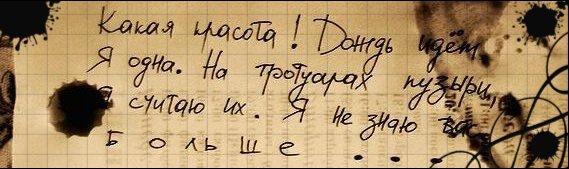 Какая красота! Дождь идёт,
Я одна. На тротуарах пузыри,
Я считаю их. Я не знаю вас
Б о л ь ш е ...